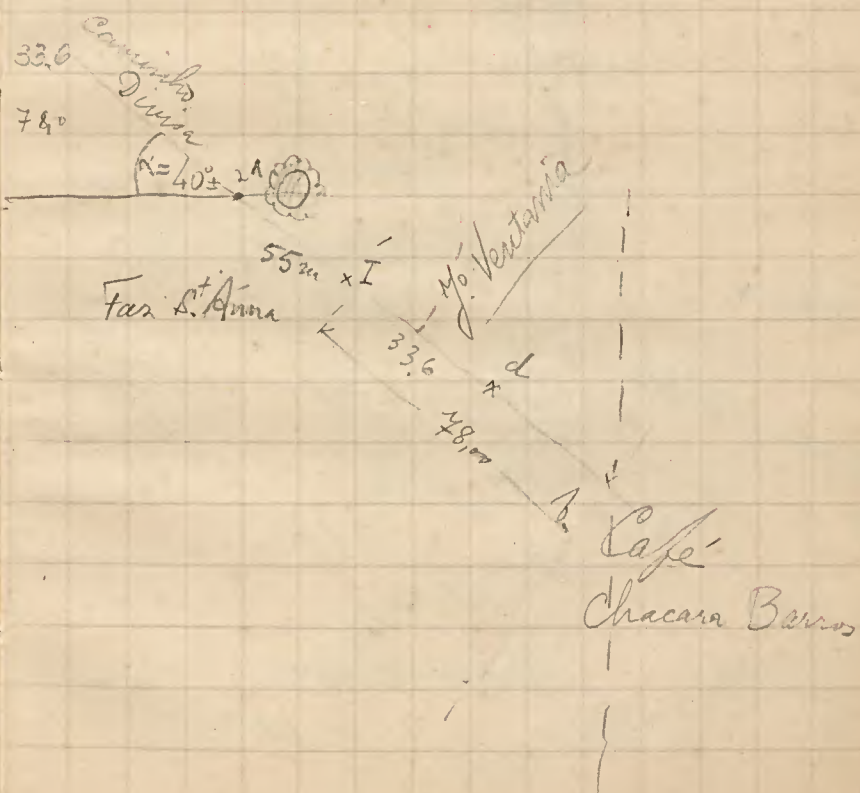 33,6
Caminho
Divisa
78,0
α = 40° ±
2A
55m
I
Faz S.ta Anna
Ventania
33,6
d
78,00
b
Café
Chacara Barros